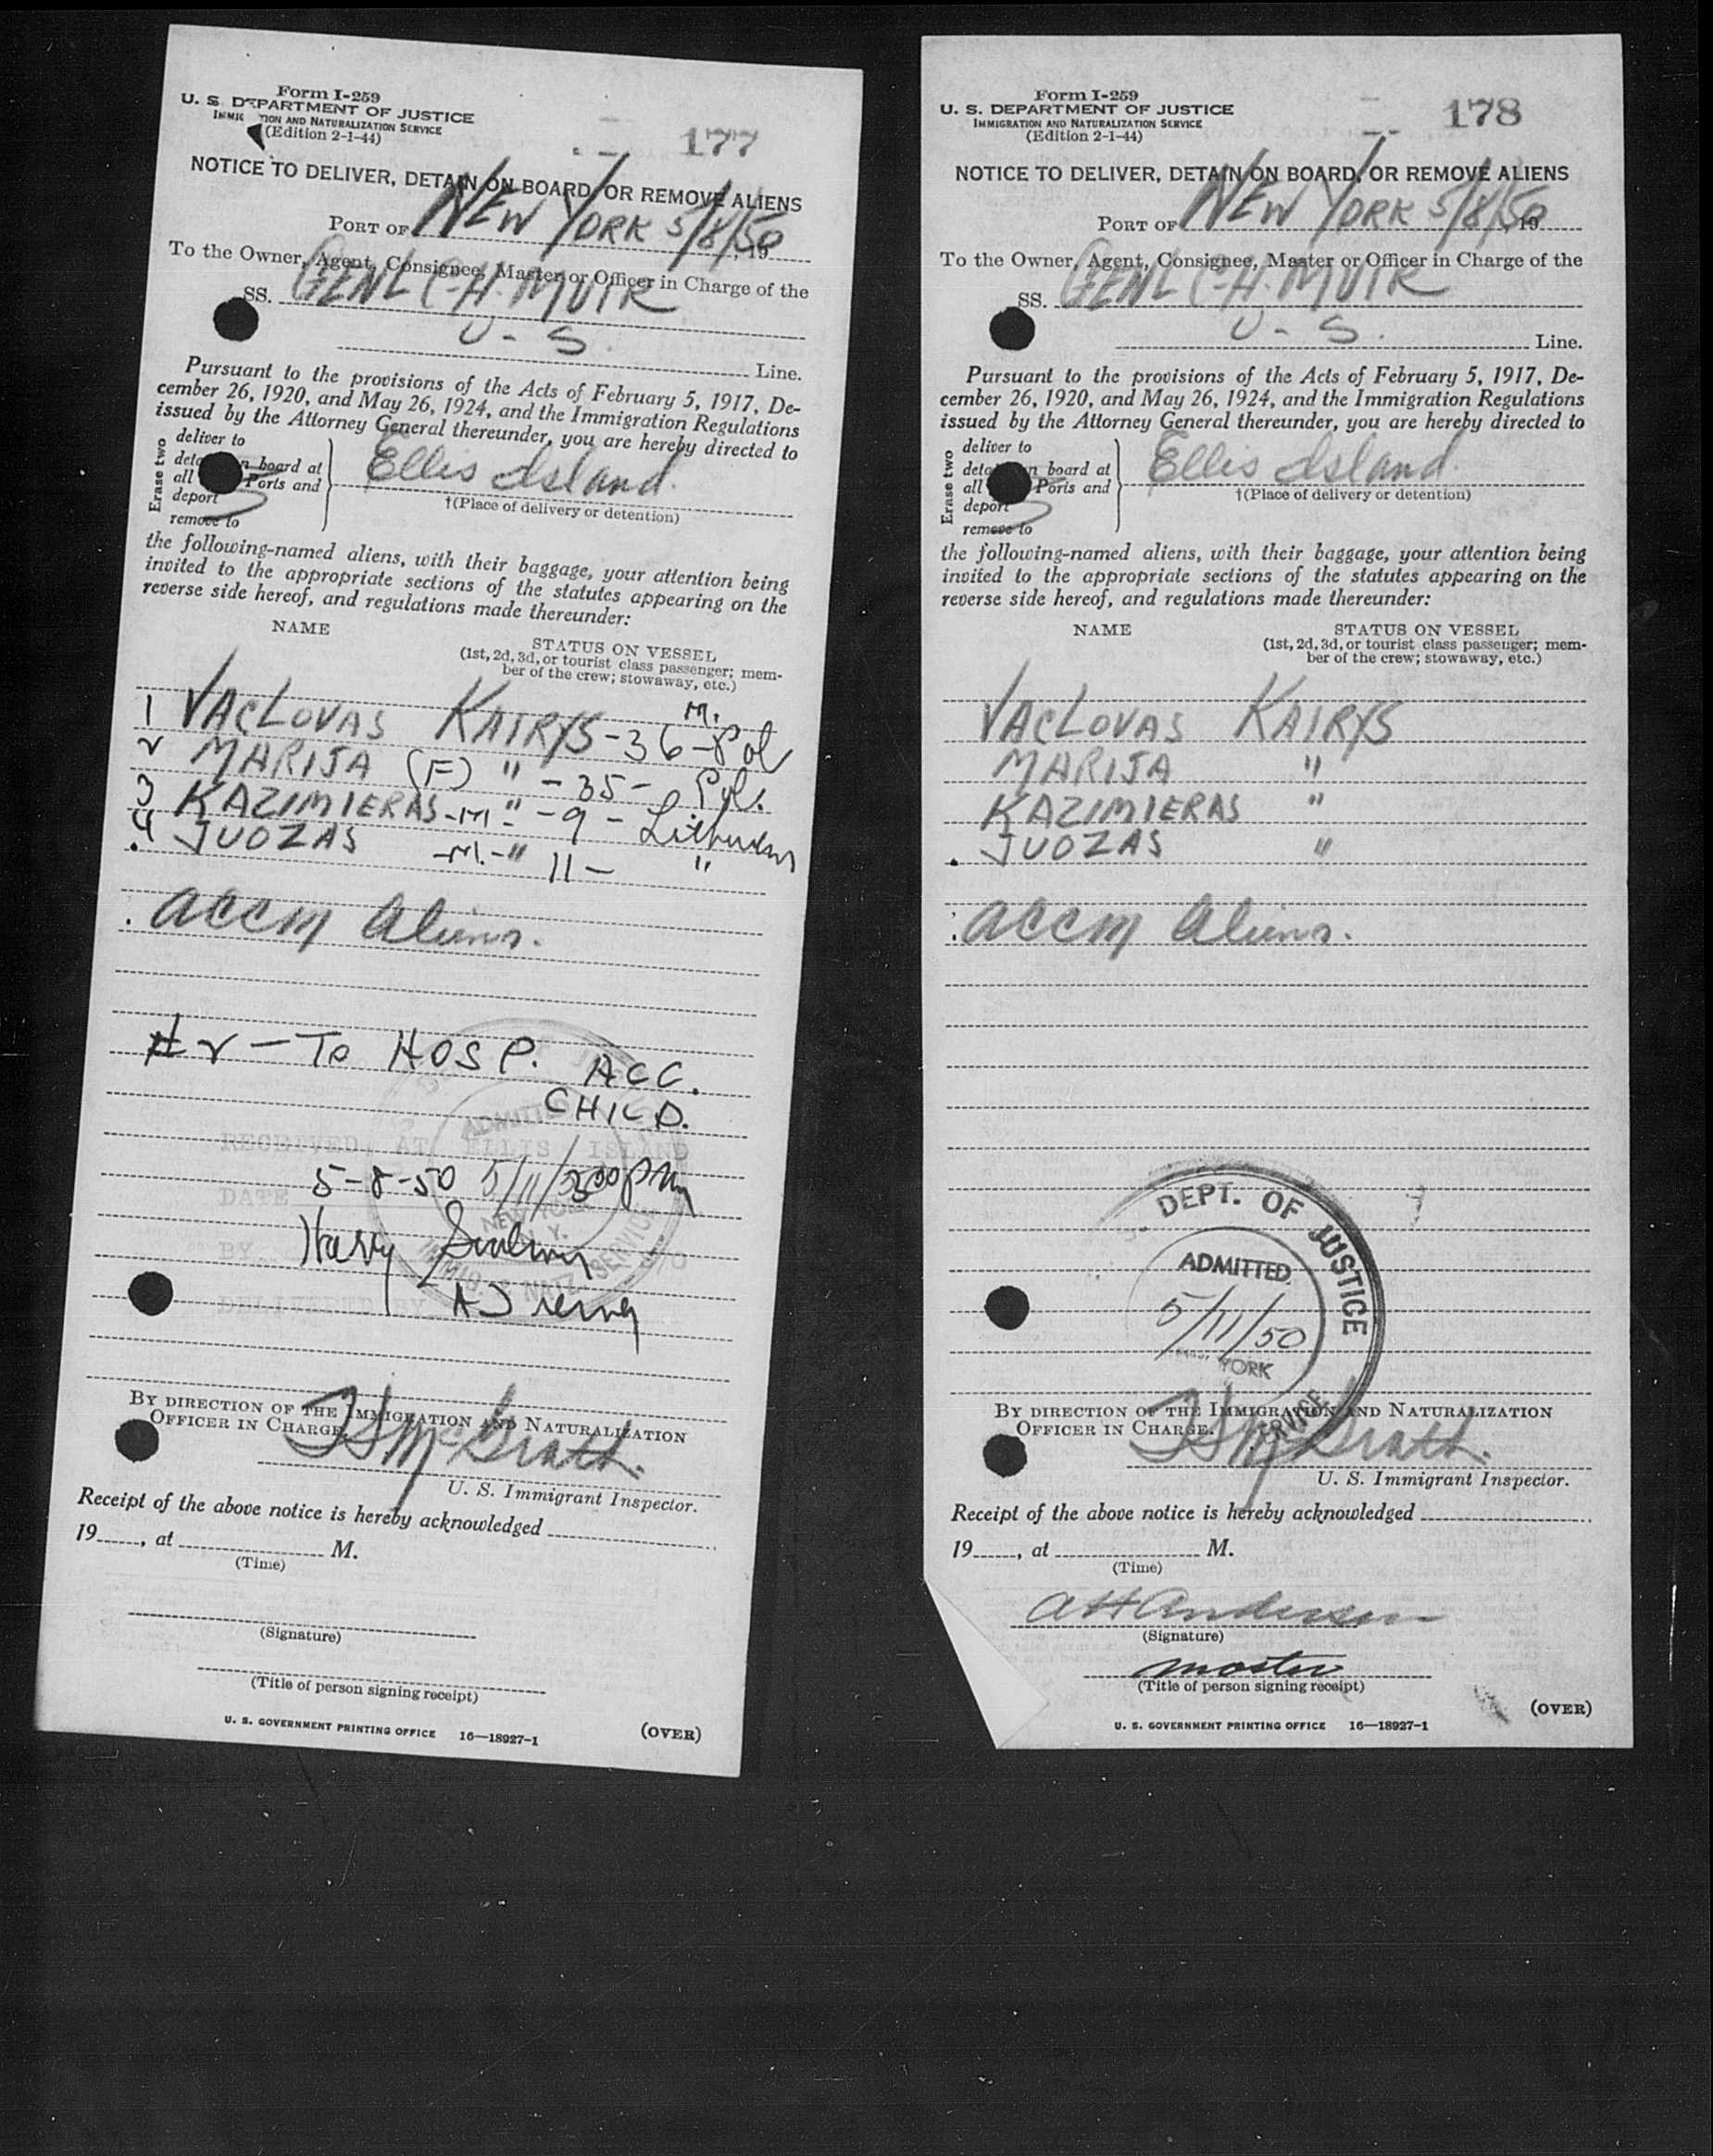 Form I-259
U. S. DEPARTMENT OF JUSTICE
IMMIG TION AND NATURALIZATION SERVICE
(Edition 2-1-44)
177
NOTICE TO DELIVER, DETAIN ON BOARD, OR REMOVE ALIENS
PORT OF NEW YORK 5/8/50, 19
To the Owner, Agent, Consignee, Master or Officer in Charge of the
SS. GENL C. H. MUIR
U-S. Line.
Pursuant to the provisions of the Acts of February 5, 1917, De-
cember 26, 1920, and May 26, 1924, and the Immigration Regulations
issued by the Attorney General thereunder, you are hereby directed to
Erase two
deliver to
deta n board at
all Ports and
deport
remove to
Ellis Island.
†(Place of delivery or detention)
the following-named aliens, with their baggage, your attention being
invited to the appropriate sections of the statutes appearing on the
reverse side hereof, and regulations made thereunder:
NAME
STATUS ON VESSEL
(1st, 2d, 3d, or tourist class passenger; mem-
ber of the crew; stowaway, etc.)
1 VACLOVAS KAIRYS - M. 36 - Pol
2 MARIJA (F) " - 35 - Pol.
3 KAZIMIERAS - M - " - 9 -
4 JUOZAS - M. - " 11 - "
ACCM Aliens.
# 2 - TO HOSP. ACC.
CHILD.
RECEIVED AT ELLIS ISLAND
DATE 5-8-50 5/11/50 300 PM
ADMITTED
NEW YORK
N. Y.
IMMIG. & NATZ. SERVICE
BY Harry
DELIVERED BY
BY DIRECTION OF THE IMMIGRATION AND NATURALIZATION
OFFICER IN CHARGE.
McGrath.
U. S. Immigrant Inspector.
Receipt of the above notice is hereby acknowledged
19, at M.
(Time)
(Signature)
(Title of person signing receipt)
U. S. GOVERNMENT PRINTING OFFICE 16—18927-1
(OVER)
Form I-259
U. S. DEPARTMENT OF JUSTICE
IMMIGRATION AND NATURALIZATION SERVICE
(Edition 2-1-44)
178
NOTICE TO DELIVER, DETAIN ON BOARD, OR REMOVE ALIENS
PORT OF NEW YORK 5/8/50, 19
To the Owner, Agent, Consignee, Master or Officer in Charge of the
SS. GENL C. H. MUIR
U-S. Line.
Pursuant to the provisions of the Acts of February 5, 1917, De-
cember 26, 1920, and May 26, 1924, and the Immigration Regulations
issued by the Attorney General thereunder, you are hereby directed to
Erase two
deliver to
deta n board at
all Ports and
deport
remove to
Ellis Island.
†(Place of delivery or detention)
the following-named aliens, with their baggage, your attention being
invited to the appropriate sections of the statutes appearing on the
reverse side hereof, and regulations made thereunder:
NAME
STATUS ON VESSEL
(1st, 2d, 3d, or tourist class passenger; mem-
ber of the crew; stowaway, etc.)
VACLOVAS KAIRYS
MARIJA "
KAZIMIERAS "
JUOZAS "
ACCM Aliens.
DEPT. OF JUSTICE
ADMITTED
5/11/50
YORK
SERVICE
BY DIRECTION OF THE IMMIGRATION AND NATURALIZATION
OFFICER IN CHARGE.
McGrath.
U. S. Immigrant Inspector.
Receipt of the above notice is hereby acknowledged
19, at M.
(Time)
AH Andersen
(Signature)
master
(Title of person signing receipt)
U. S. GOVERNMENT PRINTING OFFICE 16—18927-1
(OVER)